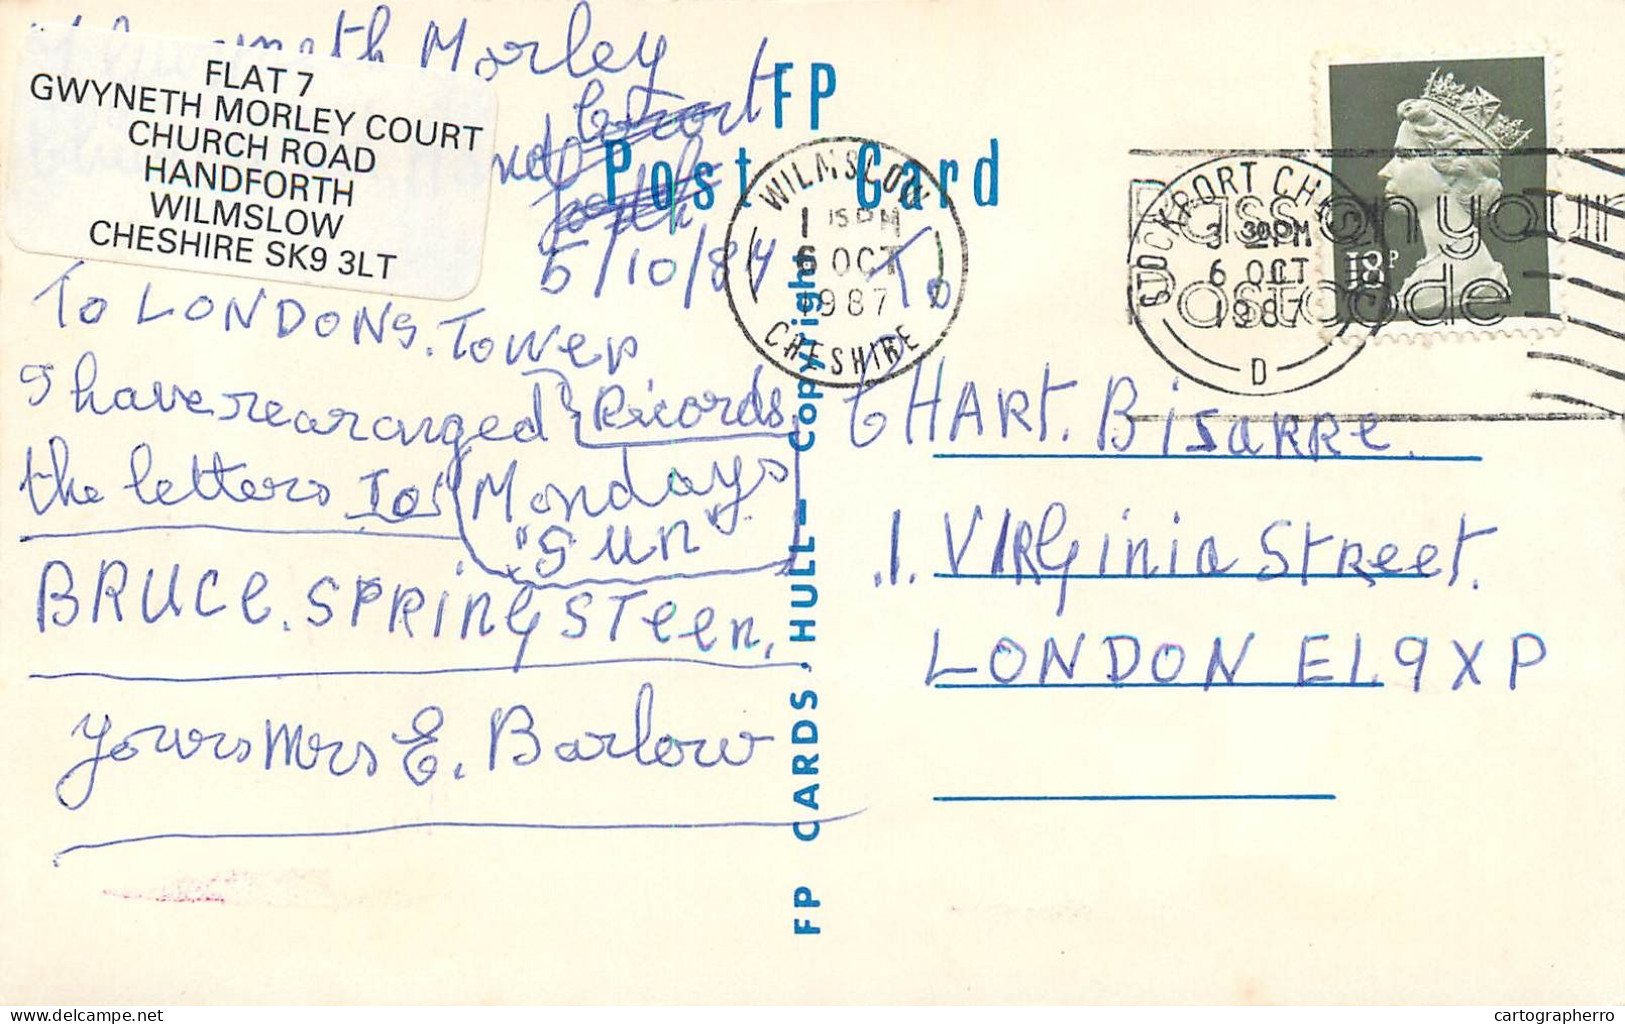 Morley
FLAT 7
GWYNETH MORLEY COURT
CHURCH ROAD
HANDFORTH
WILMSLOW
CHESHIRE SK9 3LT
5/10/87
To LONDONS. Tower
I have rearranged { Ricords
the letters Io( Mondays
"Sun"
BRUCe. SPRINgSTeen.
Yours Mrs E. Barlow
FP
Post Card
FP CARDS, HULL — Copyright
WILMSLOW
1 15 PM
6 OCT
1987
CHESHIRE
STOCKPORT
3 30 PM
6 OCT
1987
D
Pass on your
Postcode
18P
To
CHARt. Bisarre.
1. VIRginia Street.
LONDON E1.9XP
cartographerro